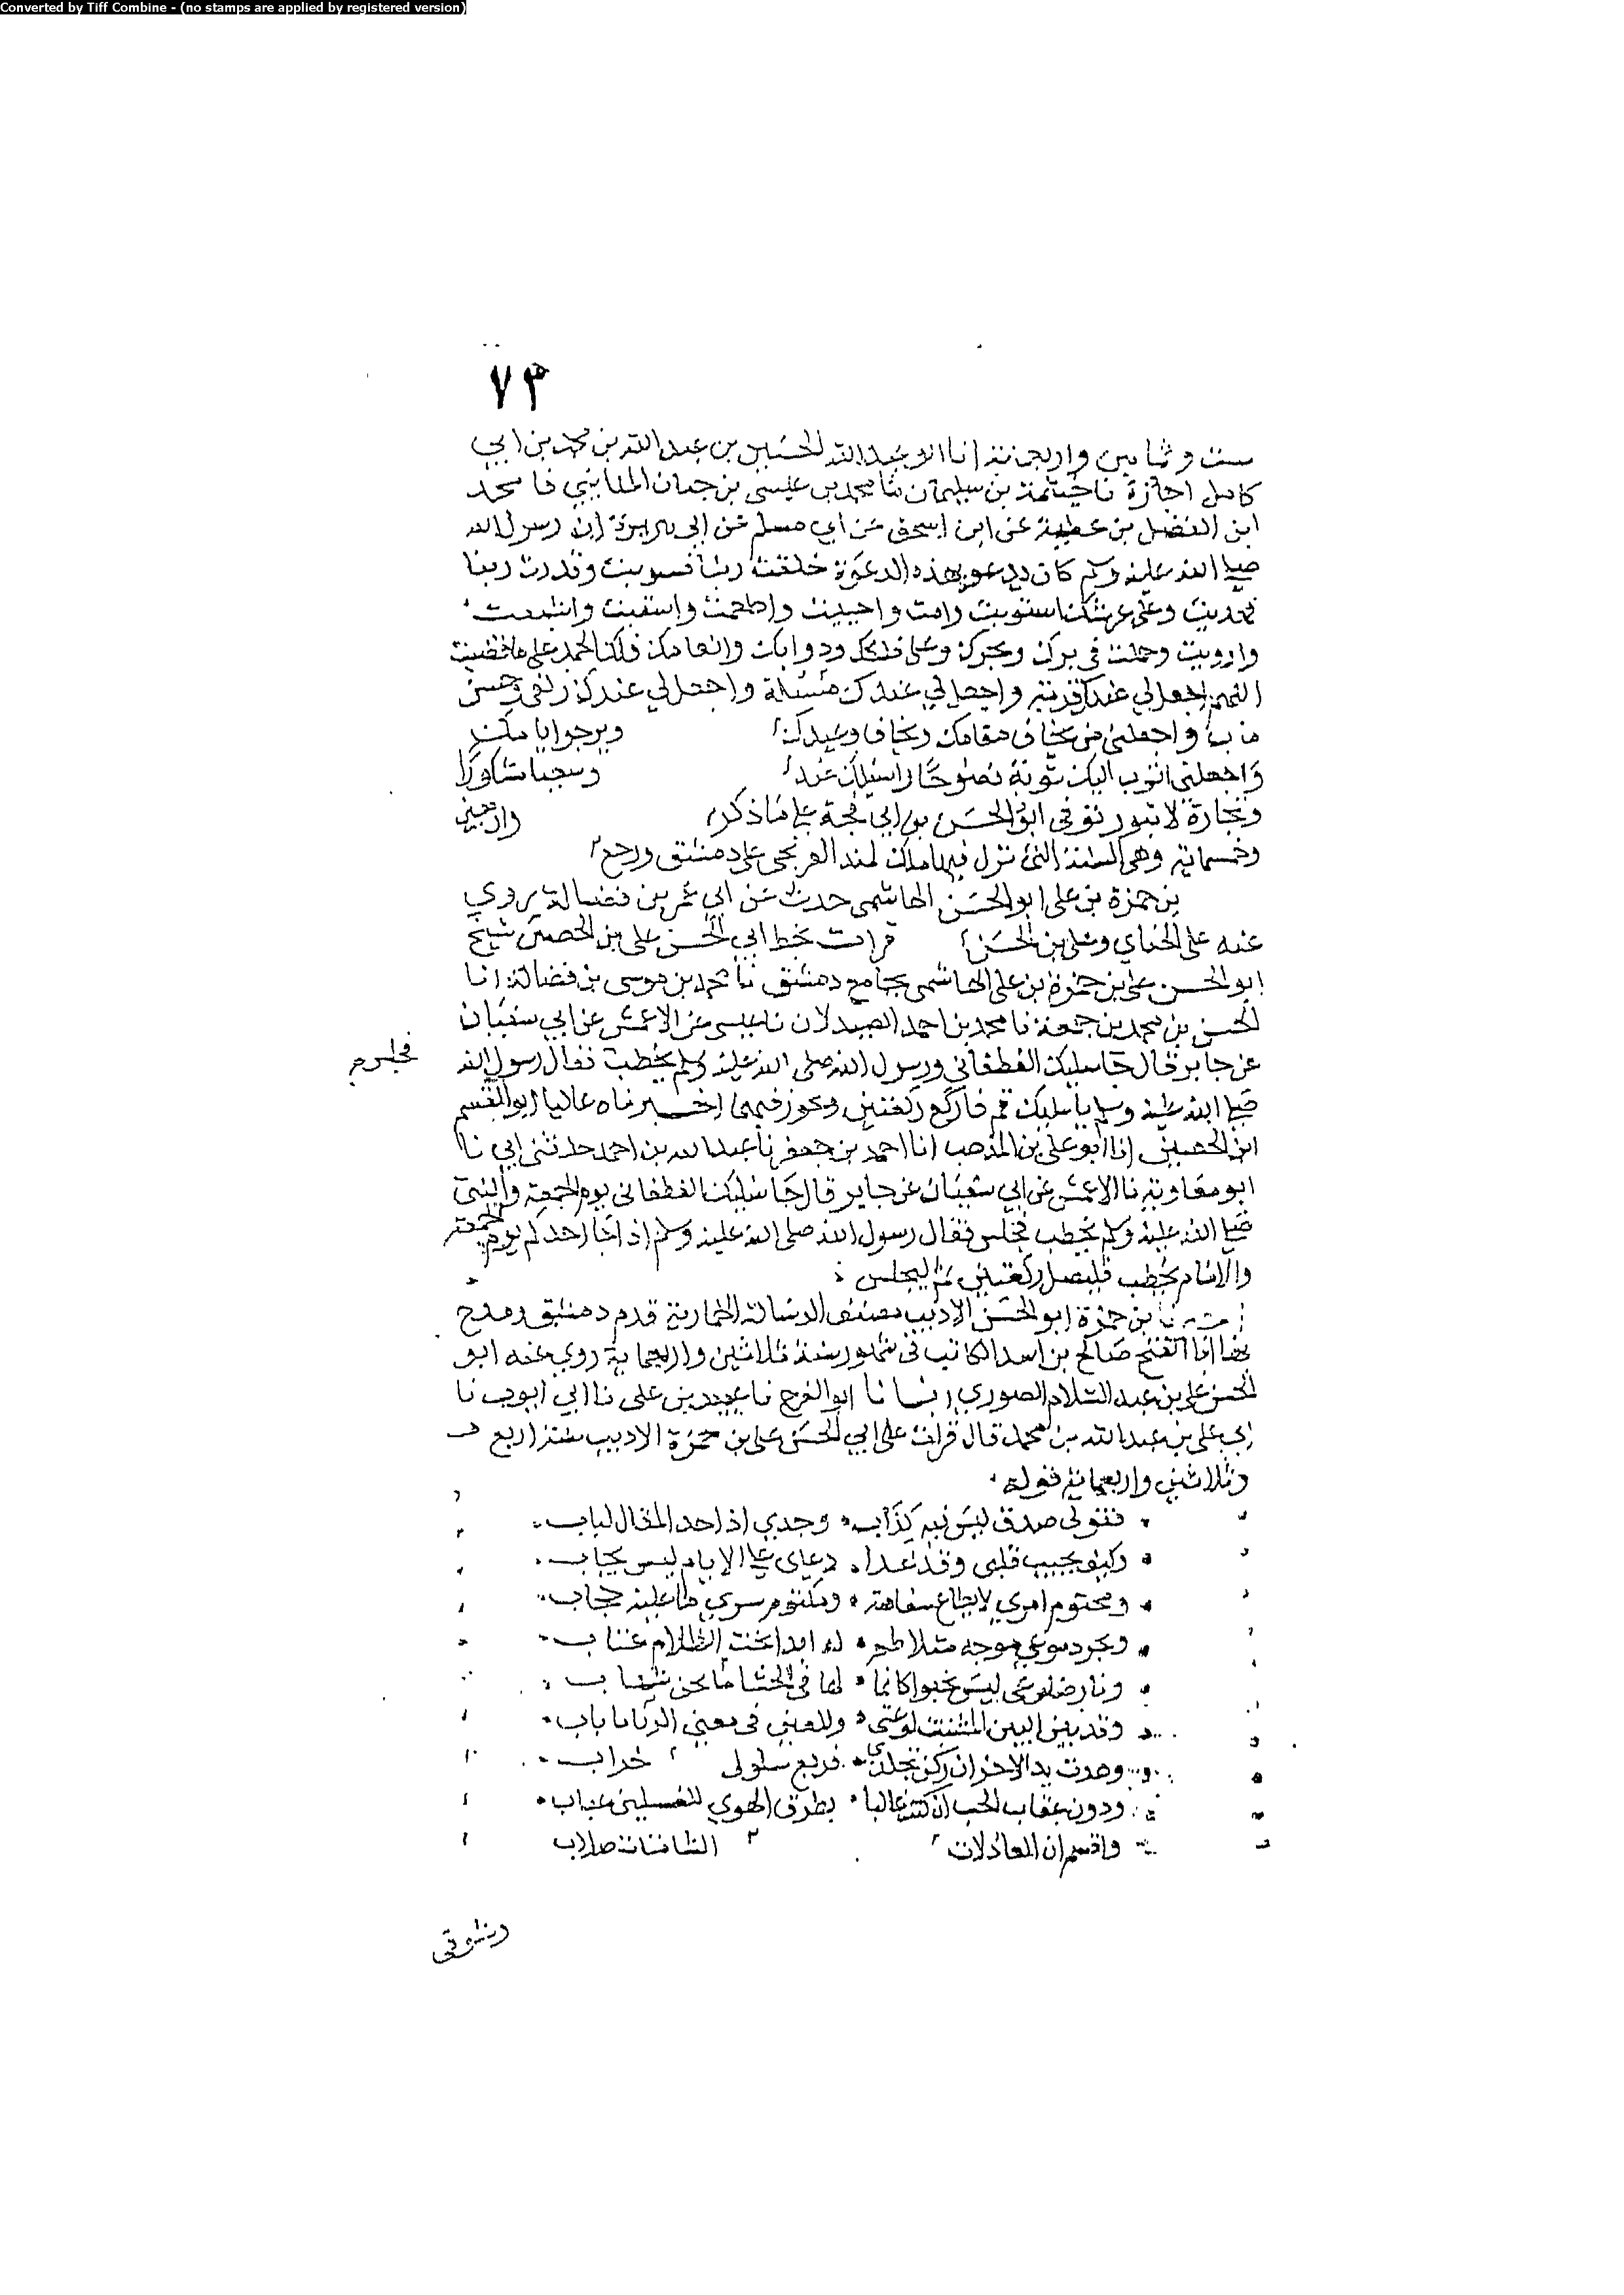 Converted by Tiff Combine - (no stamps are applied by registered version)
٧٣
ست وثمانين واربعمائة انا ابو عبد الله الحسين بن عبد الله بن محمد بن ابي
كامل اجازة نا خيثمة بن سليمان نا محمد بن عيسى بن حيان المدايني نا محمد
ابن الفضل بن عطية عن ابن اسحق عن ابي مسلم عن ابي هريرة ان رسول الله
صلى الله عليه وسلم كان يدعو بهذه الدعوة خلقت ربنا فسويت وقدرت ربنا
فهديت وعلى عرشك استويت وامت واحييت واطعمت واسقيت واشبعت
وارويت وحملت في برك وبحرك وعلى فلكك ودوابك وانعامك فلك الحمد على ما قضيت
اللهم اجعل لي عندك قربة واجعل لي عندك وسيلة واجعل لي عندك زلفى وحسن
ماب واجعلني ممن يخاف مقامك ويخاف وعيدك ويرجو ايامك
واجعلني اتوب اليك توبة نصوحا واسئلك عند وسعيا مشكورا
وتجارة لا تبور توفي ابو الحسن بن ابي فجة على ما ذكر واربعين
وخمسماية وهي السنة التي نزل فيها ملك الفرنجي على دمشق ورجع
بن حمزة بن علي ابو الحسن الهاشمي حدث عن ابي عمر بن فضالة روي
عنه علي الحناي وعلي بن الحسن قرات بخط ابي الحسن علي بن الحصين شيخ
ابو الحسن علي بن حمزة بن علي الهاشمي بجامع دمشق نا محمد بن موسى بن فضالة انا
الحسن بن محمد بن جمعة نا محمد بن احمد الصيدلان نا عيسى عن الاعمش عن ابي سفيان
عن جابر قال جا سليك الغطفاني ورسول الله صلى الله عليه وسلم يخطب فقال رسول الله
فجلس
صلى الله عليه وسلم يا سليك قم فاركع ركعتين وتجوز فيهما اخبرناه عاليا ابو القسم
ابن الحصين انا ابو علي بن المذهب انا احمد بن جعفر نا عبد الله بن احمد حدثني ابي نا
ابو معاوية نا الاعمش عن ابي سفيان عن جابر قال جا سليك الغطفاني يوم الجمعة والنبي
صلى الله عليه وسلم يخطب فجلس فقال رسول الله صلى الله عليه وسلم اذا جا احدكم يوم الجمعة
والامام يخطب فليصل ركعتين ثم ليجلس
بن حمزة ابو الحسن الاديب مصنف الرسالة الحمارية قدم دمشق ومدح
بها ابا الفتح صالح بن اسد الكاتب في شهور سنة ثلاثين واربعماية روي عنه ابو
الحسن علي بن عبد السلام الصوري انبانا ابو الفرج نا علي نا ابي ابو
ابي علي بن عبد الله بن محمد قال قرات على ابي الحسن علي بن حمزة الاديب سنة اربع
وثلاثين واربعمائة فقوله
فقولي صدق ليس فيه كذاب وجدي اذا حد المقال لباب
وكيف يجيب قلبي وقد غدا دعاي على الايام ليس يجاب
ومحتوم امري لا يطاع سفاهة ومكتوم سري ما عليه حجاب
وبحر دموعي موجه متلاطم له ابدا تحت الظلام عباب
ونار ضلوعي ليس تخبو كانما لها في الحشا شهاب
وقد بين البين المشتت لوعتي وللعين في معنى باب
وهدت يد الاحزان ركن تجلدي فربع سلوى خراب
ودون عقاب الحب ان كنت عالبا بطرق الهوى للنفس عقاب
واقسم ان العاذلات صلاب
وشوقي